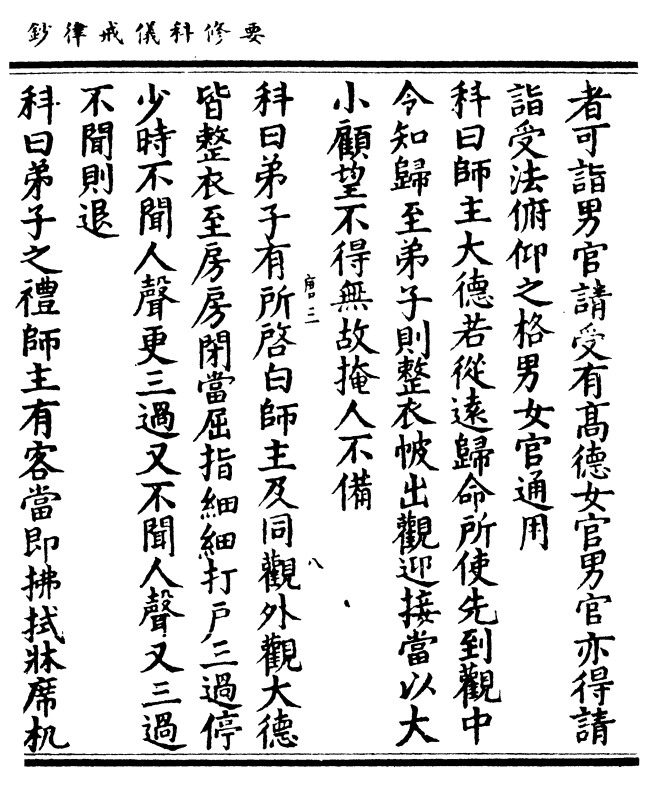 要修科儀戒律鈔
者可詣男官請受有高德女官男官亦得請
詣受法俯仰之格男女官通用
科曰師主大德若從遠歸命所使先到觀中
令知歸至弟子則整衣帔出觀迎接當以大
小顧望不得無故掩人不備
唐三
八
科曰弟子有所啓白師主及同觀外觀大德
皆整衣至房房閉當屈指細細打戶三過停
少時不聞人聲更三過又不聞人聲又三過
不聞則退
科曰弟子之禮師主有客當即拂拭牀席机